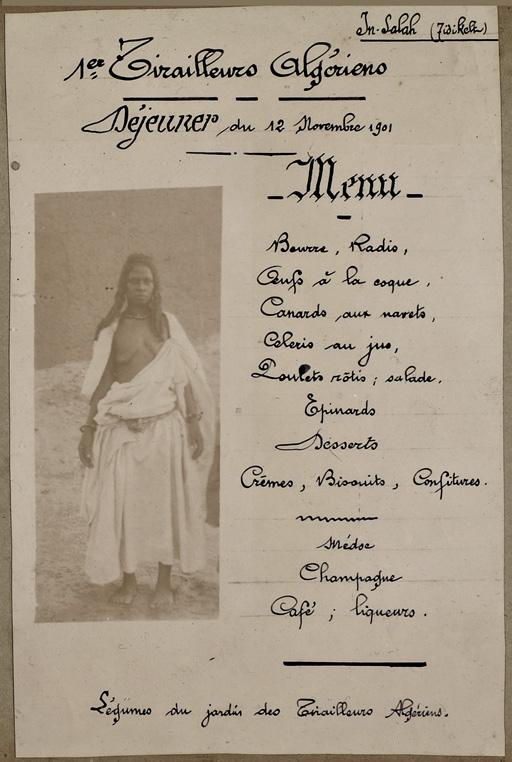 In-Salah (Tidikelt)
1er Tirailleurs Algériens
Déjeuner du 12 Novembre 1901
Menu
Beurre, Radis,
Œufs à la coque,
Canards aux navets,
Celeris au jus,
Poulets rôtis; salade.
Epinards
Desserts
Crêmes, Biscuits, Confitures.
Médoc
Champagne
Café; liqueurs.
Légumes du jardin des Tirailleurs Algériens.